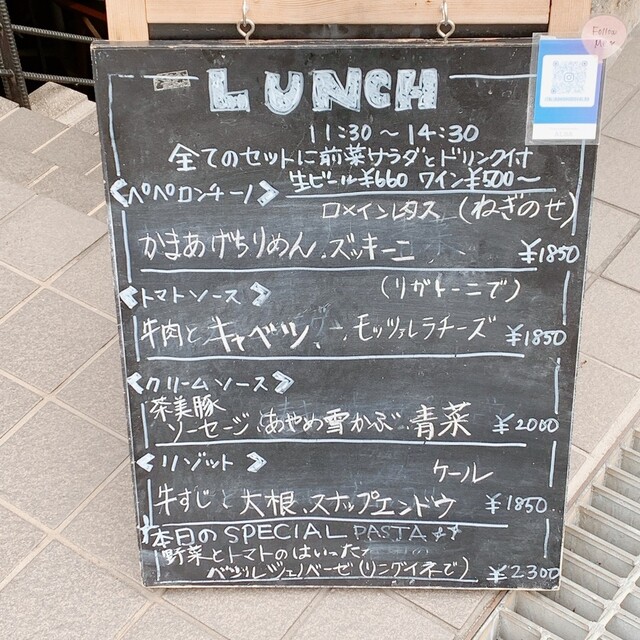 Follow Me
LUNCH
11:30～14:30
全てのセットに前菜サラダとドリンク付
生ビール¥660 ワイン¥500～
<ペペロンチーノ>
ロメインレタス（ねぎのせ）
かまあげちりめん、ズッキーニ ¥1850
<トマトソース> （リガトーニで）
牛肉とキャベツ、モッツァレラチーズ ¥1850
<クリームソース>
茶美豚
ソーセージ、あやめ雪かぶ、青菜 ¥2000
<リゾット> ケール
牛すじと大根、スナップエンドウ ¥1850
本日のSPECIAL PASTA☆☆
野菜とトマトのはいった
バジルジェノベーゼ（リングイネで） ¥2300